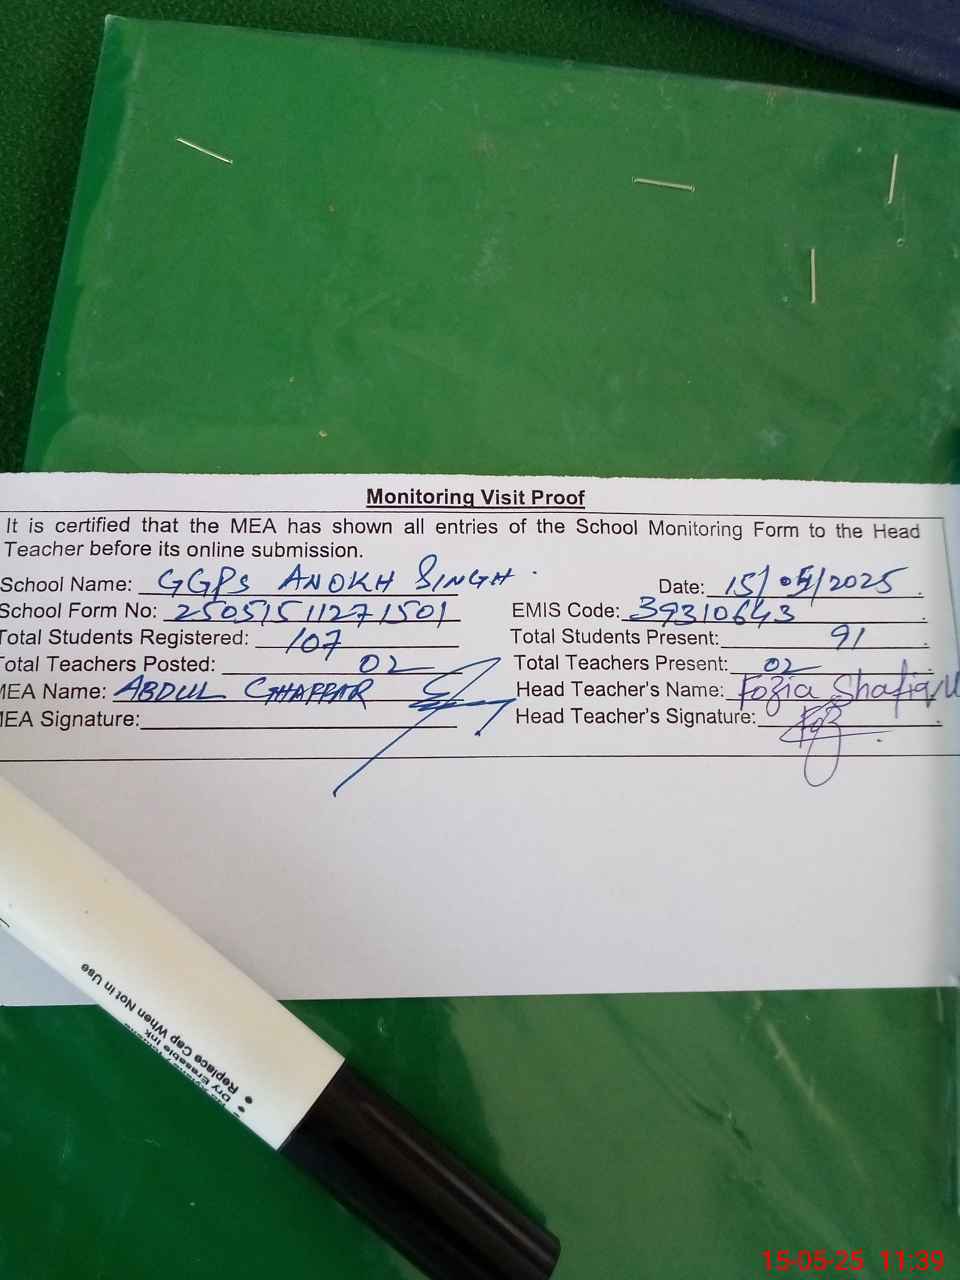 Monitoring Visit Proof
It is certified that the MEA has shown all entries of the School Monitoring Form to the Head
Teacher before its online submission.
School Name: GGPS ANOKH SINGH Date: 15/05/2025
School Form No: 25051511271501 EMIS Code: 39310643
Total Students Registered: 107 Total Students Present: 91
Total Teachers Posted: 02 Total Teachers Present: 02
MEA Name: ABDUL GHAFFAR Head Teacher's Name: Fozia Shafiq
MEA Signature: Head Teacher's Signature:
Replace Cap When Not In Use
Dry Erasable Ink
15-05-25 11:39